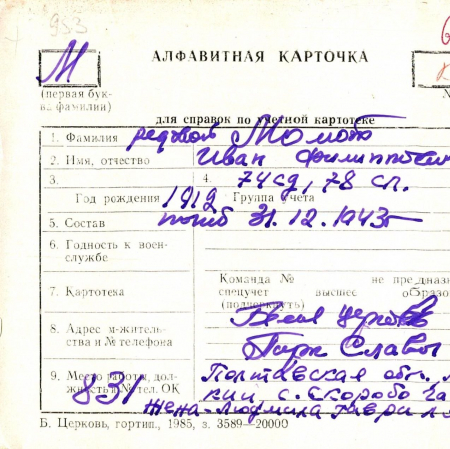 953
АЛФАВИТНАЯ КАРТОЧКА
М
(первая бук-
ва фамилии)
для справок по учетной картотеке
1. Фамилия рядовой Момот
2. Имя, отчество Иван Филиппович
3. 4. 74 сд, 78 сп.
Год рождения 1912 Группа учета
5. Состав погиб 31.12.1943г
6. Годность к воен-
службе
Команда № не предназн
7. Картотека спецучет высшее образо
(подчеркнуть)
Белая Церковь
8. Адрес м-житель-
ства и № телефона Парк Славы
9. Место работы, дол- Полтавская обл.,
жность и № тел. ОК 831 с. Скоробога
жена-Людмила Гаврил
Б. Церковь, гортип., 1985, з. 3589—20000